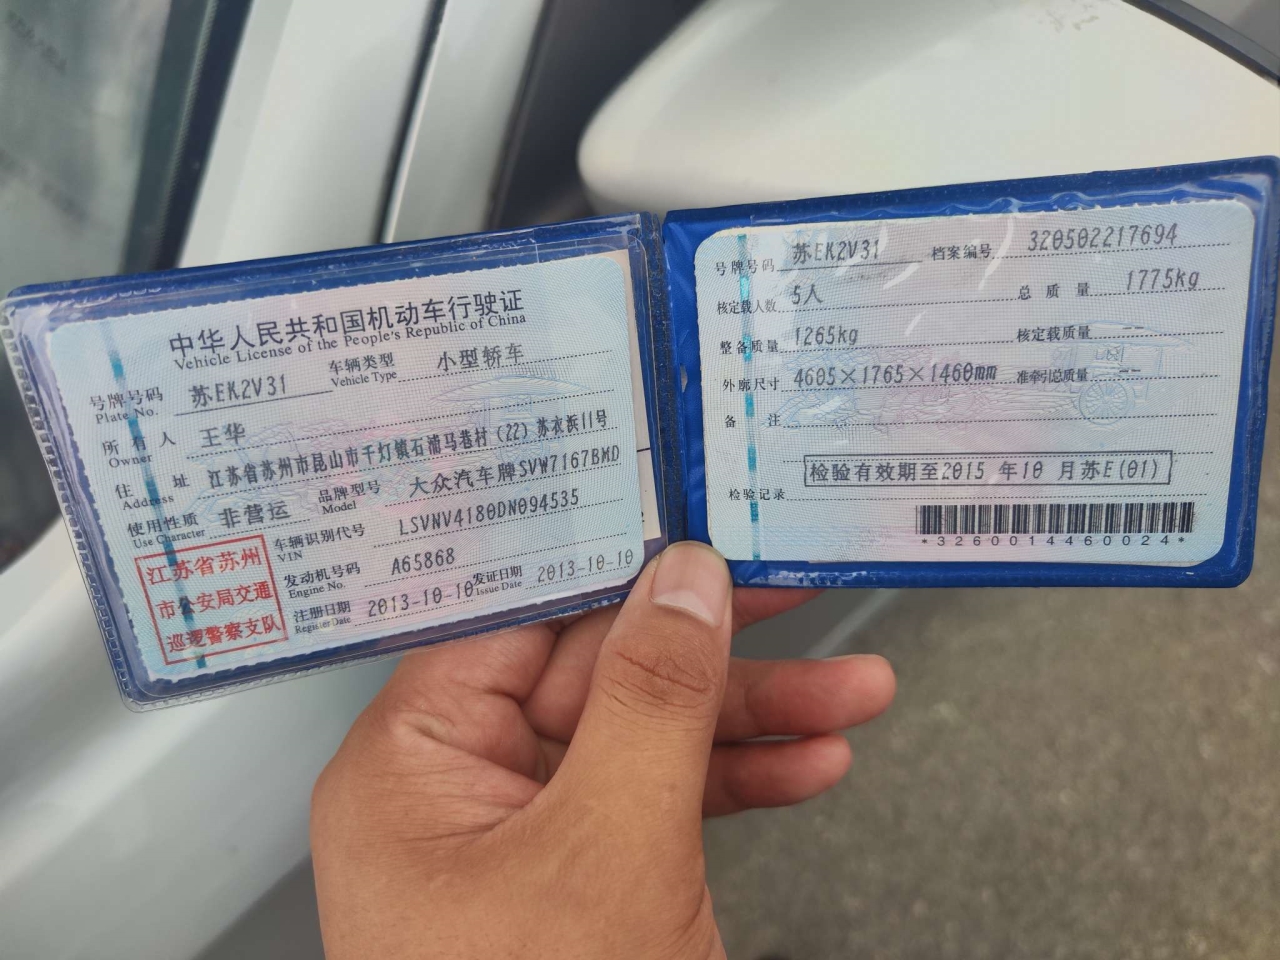 中华人民共和国机动车行驶证
Vehicle License of the People's Republic of China
号牌号码 苏EK2V31 车辆类型 小型轿车
Plate No. Vehicle Type
所有人 王华
Owner
住址 江苏省苏州市昆山市千灯镇石浦马巷村(22)苏衣浜11号
Address
使用性质 非营运 品牌型号 大众汽车牌SVW7167BMD
Use Character Model
江苏省苏州
市公安局交通
巡逻警察支队
车辆识别代号 LSVNV4180DN094535
VIN
发动机号码 A65868
Engine No.
注册日期 2013-10-10 发证日期 2013-10-10
Register Date Issue Date
号牌号码 苏EK2V31 档案编号 320502217694
核定载人数 5人 总质量 1775kg
整备质量 1265kg 核定载质量 --
外廓尺寸 4605×1765×1460mm 准牵引总质量 --
备注
检验记录 检验有效期至2015 年10 月苏E(01)
*3260014460024*